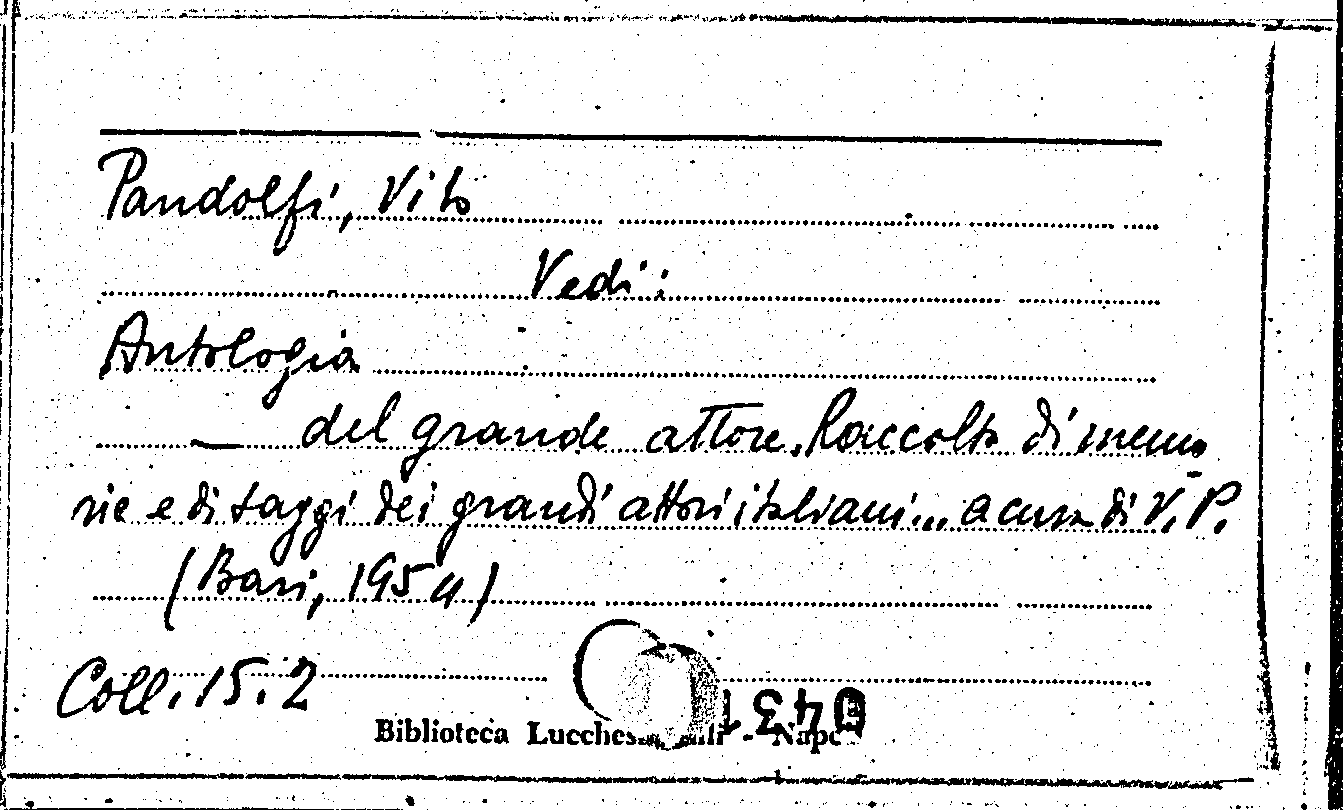 Pandolfi, Vito
Vedi:
Antologia
— del grande attore. Raccolta di memo-
rie e di saggi dei grandi attori italiani... a cura di V. P.
(Bari, 1954)
Coll. 15.2
0431
Biblioteca